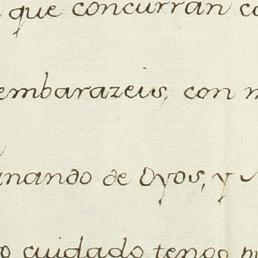 que concurran co
embarazeis, con m
nando de Oyos, y
cuidado tengo p